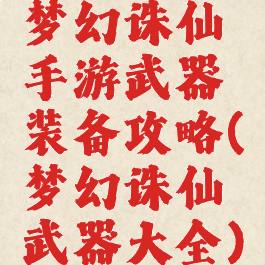 梦幻诛仙
手游武器
装备攻略(
梦幻诛仙
武器大全)